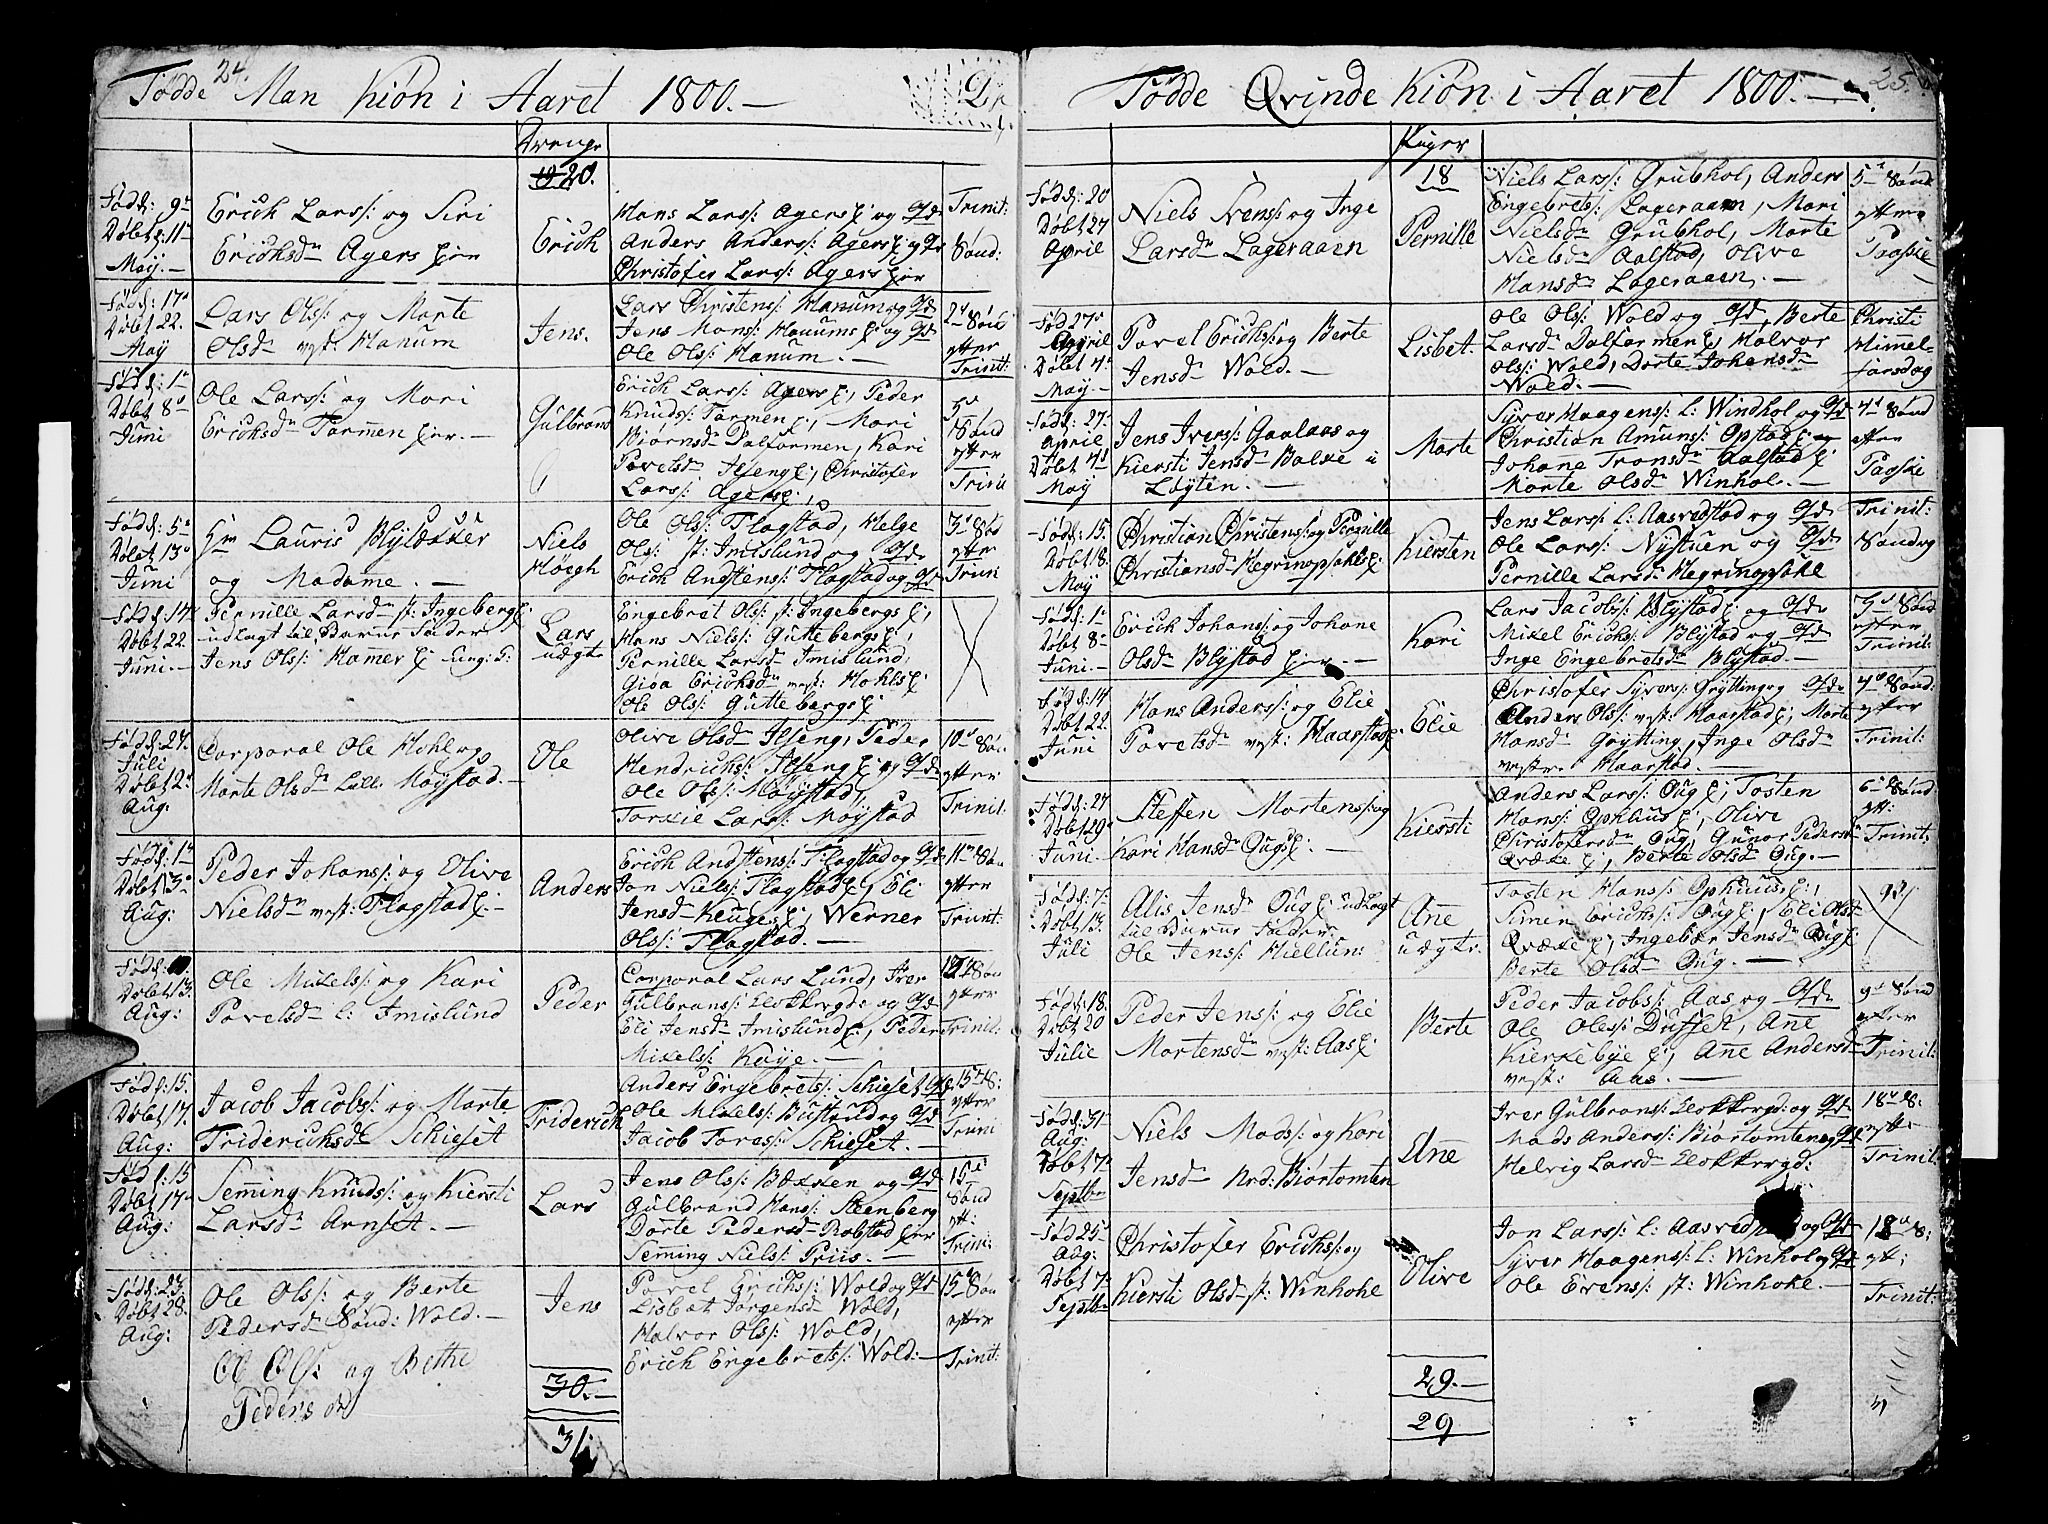 24.
Fødde Man Kiøn i Aaret 1800. —
Drenge
20.
Fødd: 9de
Døbt d: 11te
May. —
Erich Lars: og Siri
Erichsdr Agers
Erich
Hans Lars: Agers og
Anders Anders: Agers
Christofer Lars: Agers
Trinit:
Sønd:
Fødd: 17de
Døbt 22.
May
Lars Ols: og Marte
Olsdr vest: Hanum
Jens.
Lars Christens: Hanum og
Jens Hans: Hanums og
Ole Ols: Hanum. —
2den Sønd
efter
Trinit:
Fødd: 1te
Døbt 8de
Juni
Ole Lars: og Mari
Erichsdr Farmen
Gulbrand
Erich Lars: Agers, Peder
Knuds: Farmen, Mari
Biørnsdr Dalfarmen, Kari
Povelsdr Ilseng, Christofer
Lars: Agers
5te
Sønd
efter
Trinit
Fødd: 5te
Døbt 13de
Juni
Hr Lauris Blytækker
og Madame. —
Niels
Høegh
Ole Ols: Flagstad, Helge
Ols: st: Imislund og
Erich Andstens: Flagstad og
3de Sønd
efter
Trini
Fødd: 14
Døbt 22
Juni. —
Pernille Larsdr st: Ingeberg
udlagt til Barne Fader
Jens Ols: Hamer Ung: K:
Lars
uægte
Engebret Ols: st: Ingebergs,
Hans Niels: Guttebergs,
Pernille Larsdr Imislund,
Gioa Erichsdr vest: Hohls
Ole Ols: Guttebergs
Fødd: 27.
Juli
Døbt 2de
Aug:
Corporal Ole Hohl og
Marte Olsdr Lille Møystad. —
Ole
Olive Olsdr Ilseng, Peder
Hendrichs: Ilseng og
Ole Ols: Møystad,
Torkie Lars: Møystad
10de Søn.
efter
Trinit:
Fødd: 1te
Døbt 3de
Aug:
Peder Johans: og Olive
Nielsdr vest: Flagstad. —
Anders
Erich Andstens: Flagstad og
Jon Niels: Flagstad, Eli
Jensdr Keuges, Werner
Ols: Flagstad. —
11te Søn.
efter
Trinit:
Fødd:
Døbt 13.
Aug:
Ole Mikels: og Kari
Povelsdr l: Imislund
Peder
Corporal Lars Lund, Iver
Gulbrans: Klokkergd: og
Eli Jensdr Imislund, Peder
Mikels: Kaye. —
Søn
efter
Trinit:
Fødd: 15
Døbt 17.
Aug:
Jacob Jacobs: og Marte
Friderichsdr Schieset
Friderich
Anders Engebrets: Schieset
Ole Mikels: Bustrud og
Jacob Tores: Schieset. —
15de S:
efter
Trini
Fødd: 15
Døbt 17de
Aug:
Seming Knuds: og Kiersti
Larsdr Arnset. —
Lars
Jens Ols: Bækken og
Gulbrand Hans: Steenberg
Dorte Pedersdr Rabstad
Seming Niels: Priis. —
15de
Sønd
eft:
Trini:
Fødd: 23
Døbt 28.
Aug:
Ole Ols: og Berte
Pedersdr Sønd: Wold. —
Ol Ols: og Bethe
Peders dr
Jens
Povel Erichs: Wold og
Lisbet Jørgensdr Wold,
Halvor Ols: Wold,
Erich Engebrets: Wold. —
15de Søn
efter
Trinit:
30. —
31.
25.
Fødde Qvinde Kiøn i Aaret 1800. —
Piger
18
Fødd: 20
Døbt 27
April
Niels Svens: og Inge
Larsdr Lageraaen
Pernille
Niels Lars: Grubhol, Anders
Engebrets: Lageraaen, Mari
Nielsdr Grubhol, Marte
Nielsdr Aalstad, Olive
Hansdr Lageraaen. —
5te Sønd
efter
Paaske
Fød 27de
April
Døbt 7de
May. —
Povel Erichs: og Berte
Jensdr Wold. —
Lisbet.
Ole Ols: Wold og Berte
Larsdr Dalfarmen, Halvor
Ols: Wold, Dorte Johansdr
Wold. —
Christi
Himel-
farsdag
Fødd: 27.
April
Døbt 4de
May
Jens Ivers: Gaalaas og
Kiersti Jensdr Balke i
Løyten. —
Marte
Syver Haagens: l: Windhol og
Christian Amuns: Opstad og
Johane Tronsdr Aalstad
Marte Olsdr Winhol. —
4de Sønd
efter
Paaske
Fødd: 15.
Døbt 18.
May
Christian Christens: og Pernille
Christiansdr Hegrinopsahls:
Kiersten
Jens Lars: l: Aasvedstad og
Ole Lars: Nystuen og
Pernille Larsdr Hegrinopsahl
Trinit:
Søndag
Fødd: 1te
Døbt 8de
Juni. —
Erich Johans: og Johane
Olsdr Blystad
Kari
Lars Jacobs: Blystad og
Mikel Erichs: Blystad og
Inge Engebretsdr Blystad. —
Sønd
efter
Trinit:
Fødd: 14
Døbt 22.
Juni
Hans Anders: og Elie
Povelsdr vest: Haarstad
Elie
Christofer Syvers: Grytting og
Anders Ols: vest: Haarstad, Marte
Hansdr Grytting, Inge Olsdr
vestr: Haarstad. —
Sønd:
efter
Trinit:
Fødd: 27
Døbt 29de
Juni
Steffen Mortens: og
Kari Hansdr Ougs
Kiersti
Anders Lars: Oug, Tosten
Hans: Ophuus, Olive
Christofersdr Oug, Gunor Pedersdr
Qvæke, Berte Olsdr Oug. —
6te Sønd
eft:
Trinit:
Fødd: 7.
Døbt 13.
Juli
Alis Jensdr Oug udlagt
til Barne Fader
Ole Jens: Hiellum
Ane
uægte.
Tosten Hans: Ophuus,
Simen Erichs: Oug, Eli Olsdr
Qvæke, Ingebær Jensdr Oug
Berte Olsdr Oug. —
Fødd: 18.
Døbt 20
Julie
Peder Jens: og Elie
Mortensdr vest: Aas
Berte
Peder Jacobs: Aas og
Ole Oles: Duffet, Ane
Kierkebye, Ane Andersdr
vest: Aas. —
9de Sønd
efter
Trinit:
Fødd: 31
Aug:
Døbt 7de
Septbr
Niels Mads: og Kari
Jensdr Nrd: Biørtomten
Ane
Iver Gulbrans: Klokkergd: og
Mads Anders: Biørtomten og
Helvig Larsdr Klokkergd:
18de S:
eft:
Trinit:
Fød 25de
Aug:
Døbt 7de
Septbr
Christofer Erichs: og
Kiersti Olsdr st: Winhohe
Olive
Jon Lars: l: Aasved og
Syver Haagens: l: Winhol og
Ole Evens: st: Winhohe. —
18de S:
eft:
Trinit:
29. —
29